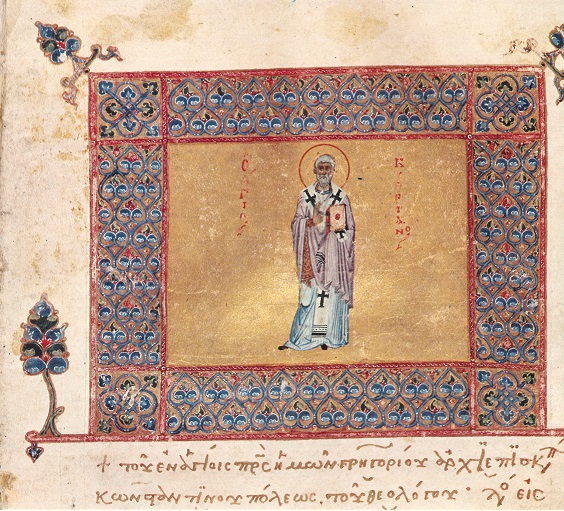 Ο ΑΓΙΟΣ
ΚΥΠΡΙΑΝΟΣ
+ τοῦ ἐν ἁγίοις πρ̅ς ἡμῶν γρηγορίου ἀρχϊεπϊσκπ
κωνσταντϊνουπόλεως, τοῦ θεολόγου· λγο εἰς